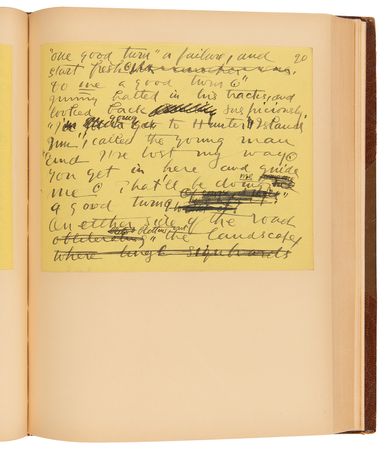 "one good turn" a failure, and 20
start fresh
to me a good turn."
Jimmy halted in his tracks, and
looked back suspiciously.
"I'm going to Hunter's Island
Inn," called the young man
"and I've lost my way.
You get in here and guide
me. That'll be doing me
a good turn."
On either side of the road
obliterating the landscape,
where huge signboards